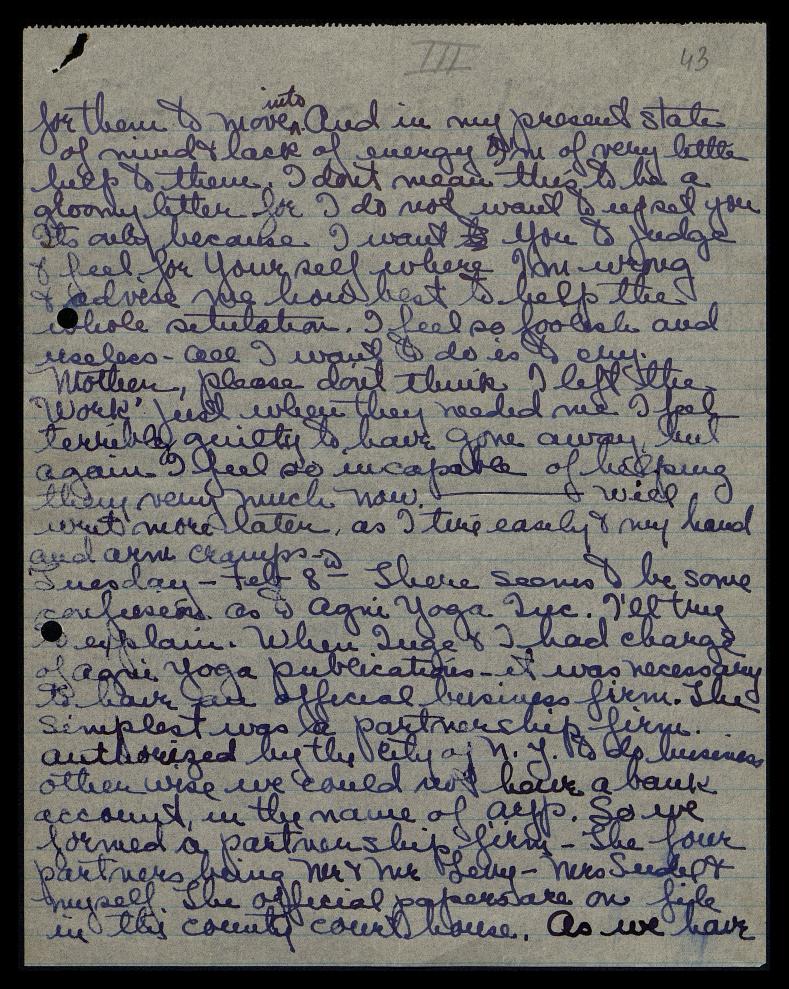 III 43
for them to move into. And in my present state
of mind & lack of energy I'm of very little
help to them. I don't mean this to be a
gloomy letter for I do not want to upset you
Its only because I want you to judge
& feel for Yourself where I'm wrong
& advise me how best to help the
whole situtation. I feel so foolish and
useless - all I want to do is to cry.
Mother, please dont think I left 'the
Work' just when they needed me I feel
terribly guilty to have gone away, but
again I feel so incapable of helping
them very much now. ——— will
write more later, as I tire easily & my hand
and arm cramps -
Tuesday - Feb 8 - There seems to be some
confusion as to Agni Yoga Inc. I'll try
to explain. When Inge & I had charge
of Agni Yoga publications - it was necessary
to have an official business firm. The
simplest was a partnership firm.
authorized by the City of N. Y. to do business
other wise we could not have a bank
account, in the name of ayp. So we
formed a partnership firm - The four
partners being Mr & Mr - Mrs &
myself. The official papers are on file
in this county court house. As we have